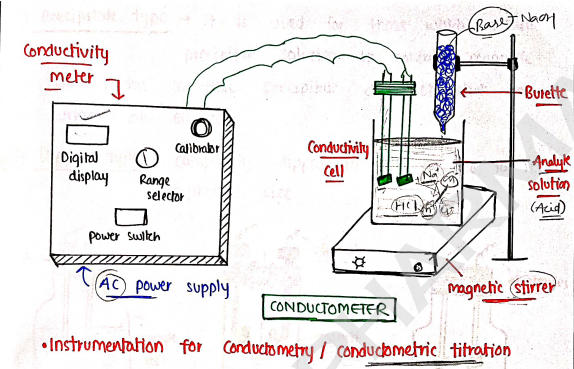 Base + NaOH
Conductivity
meter
Burette
Digital
display
Calibrator
Range
selector
Power switch
Conductivity
Cell
Analyte
solution
(Acid)
Na
HCl
H
Cl
AC power supply
magnetic stirrer
CONDUCTOMETER
•Instrumentation for Conductometry / conductometric titration